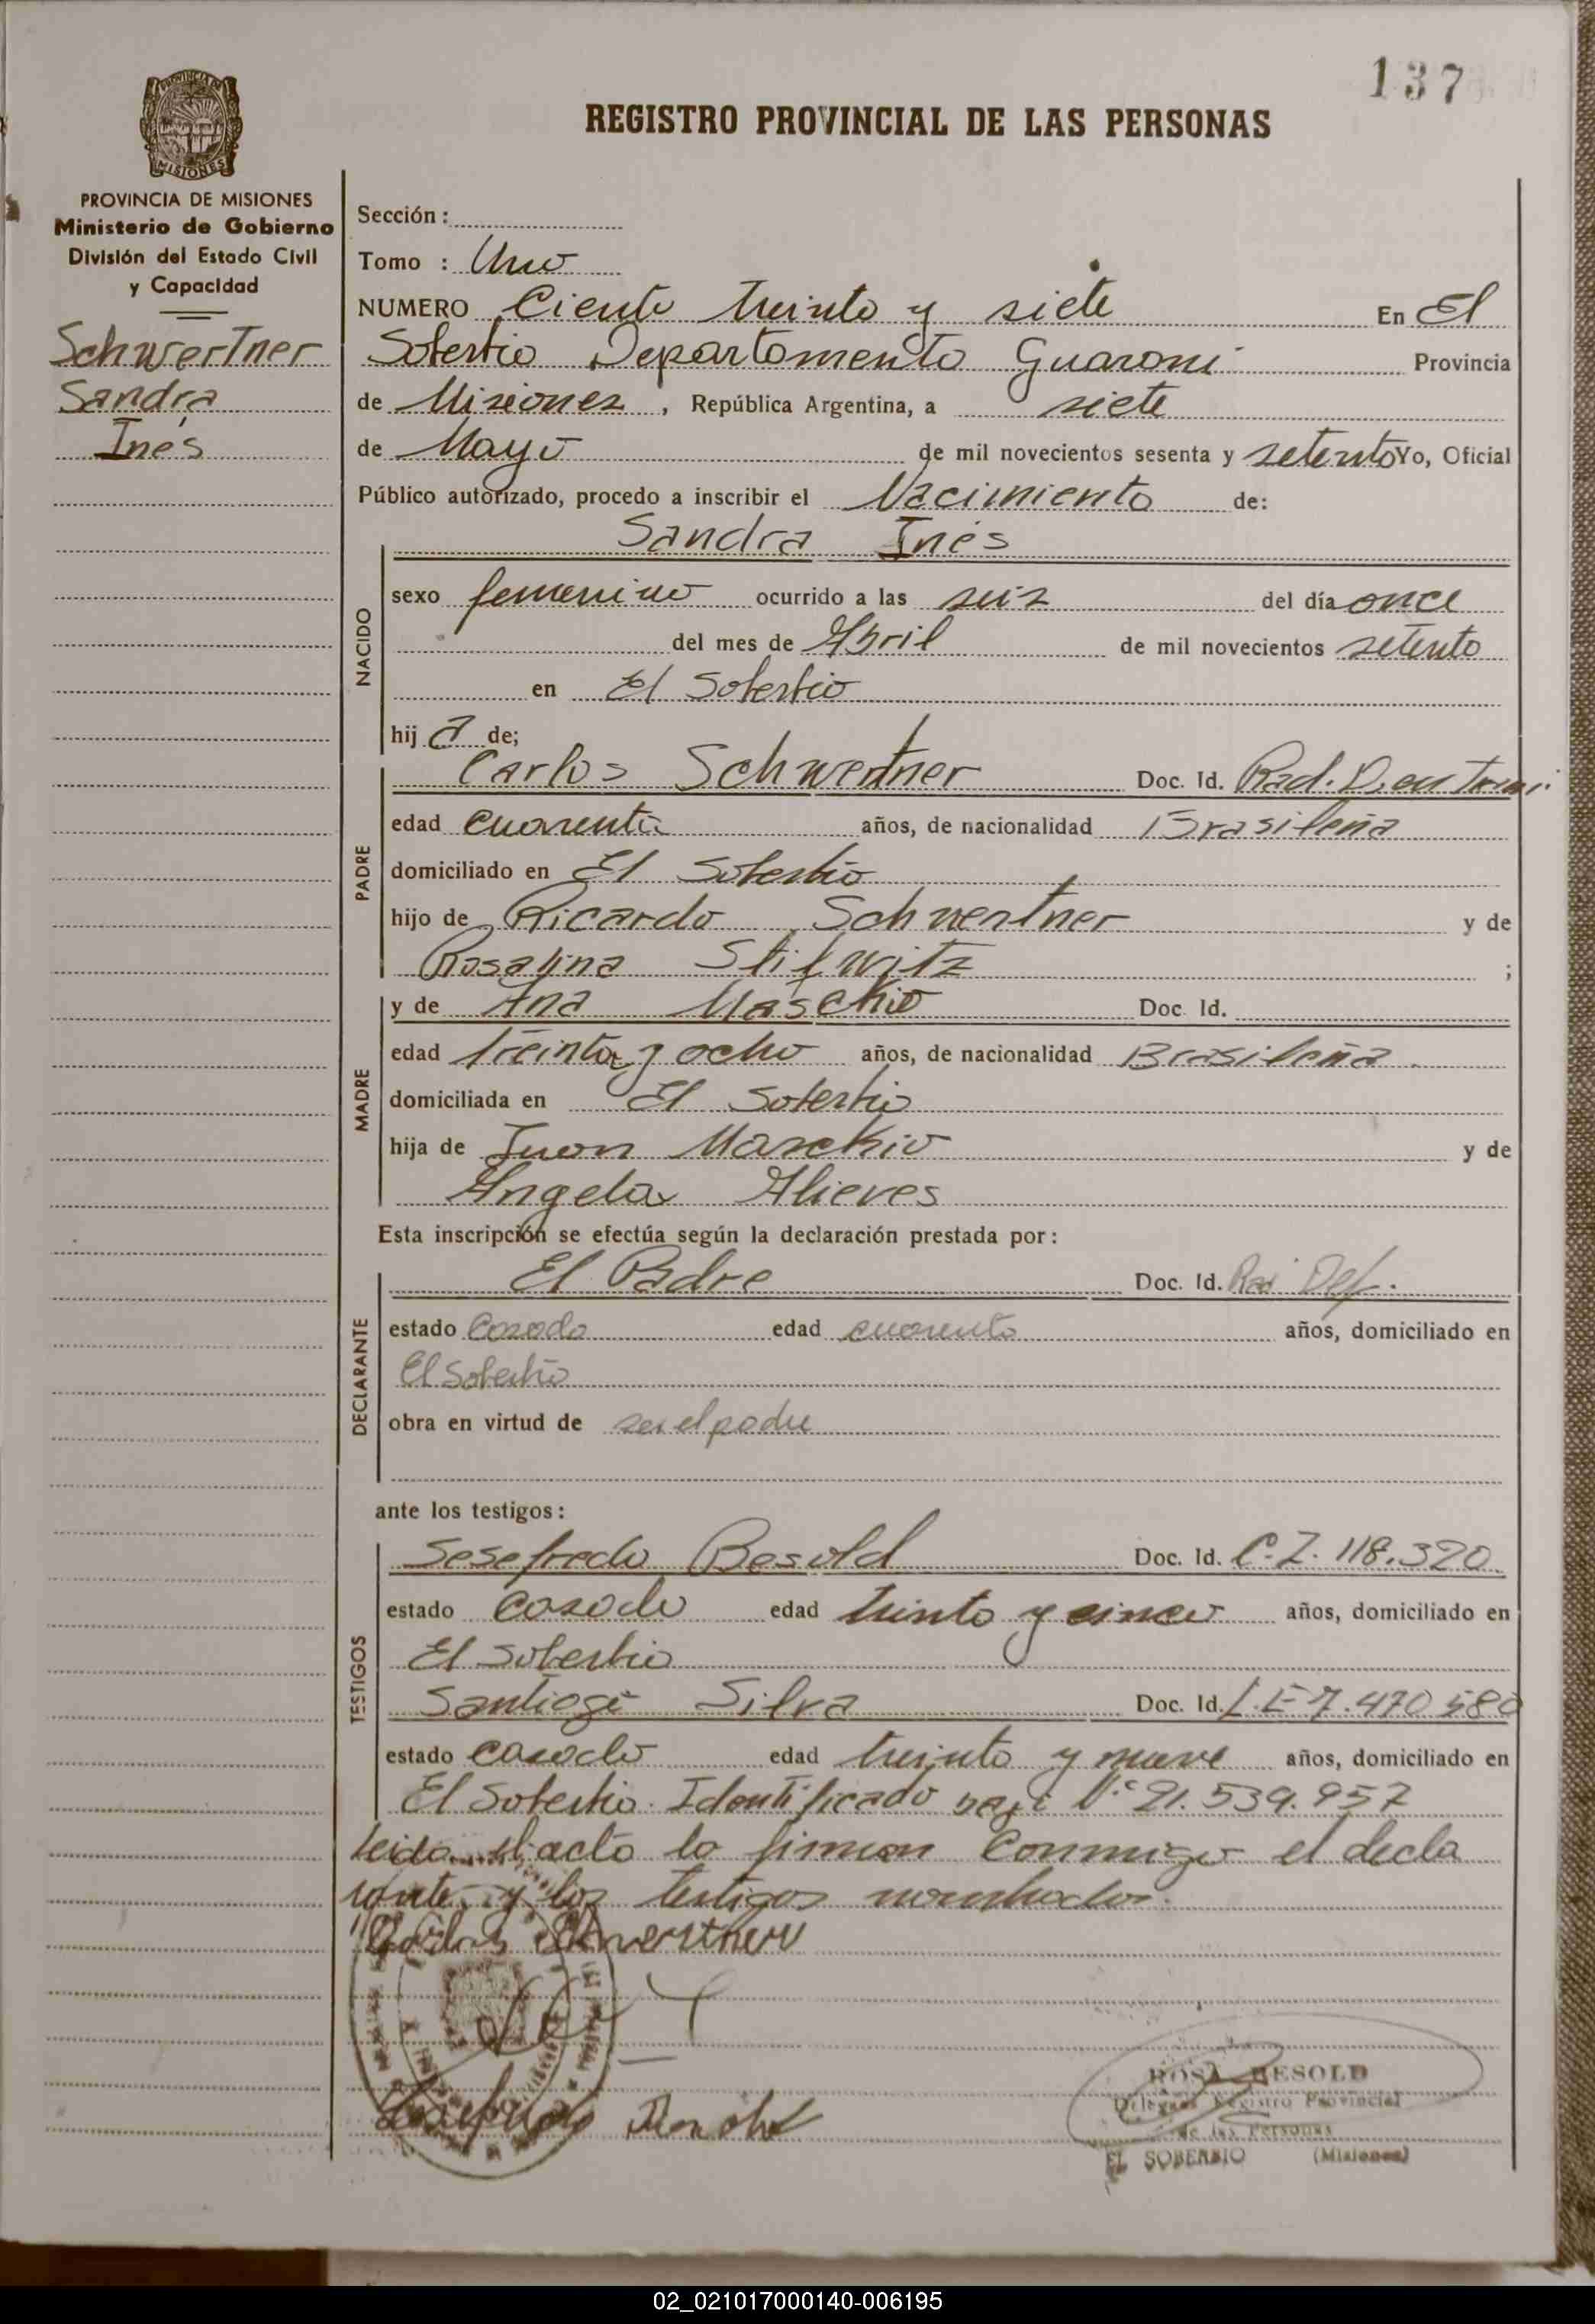 137
REGISTRO PROVINCIAL DE LAS PERSONAS
PROVINCIA DE MISIONES
Ministerio de Gobierno
División del Estado Civil
y Capacidad
Schwertner
Sandra
Inés
Sección:
Tomo : Uno
NUMERO Ciento treinta y siete En El
Soberbio Departamento Guaraní Provincia
de Misiones, República Argentina, a siete
de Mayo de mil novecientos sesenta y setenta Yo, Oficial
Público autorizado, procedo a inscribir el Nacimiento de:
Sandra Inés
NACIDO
sexo femenino ocurrido a las seis del día once
del mes de Abril de mil novecientos setenta
en El Soberbio
hij a de;
PADRE
Carlos Schwertner Doc. Id. Rad. D. en
edad cuarenta años, de nacionalidad Brasileña
domiciliado en El Soberbio
hijo de Ricardo Schwertner y de
Rosalina Stilwitz ;
MADRE
y de Ana Maschio Doc. Id.
edad treinta y ocho años, de nacionalidad Brasileña.
domiciliada en El Soberbio
hija de Juan Marckio y de
Angela Alieves
Esta inscripción se efectúa según la declaración prestada por:
DECLARANTE
El Padre Doc. Id. Rad Def.
estado Casado edad cuarenta años, domiciliado en
El Soberbio
obra en virtud de ser el padre
ante los testigos:
TESTIGOS
Sesefredo Besold Doc. Id. C.I. 118.320
estado Casado edad treinta y cinco años, domiciliado en
El Soberbio
Santiago Silva Doc. Id. L.E 7.470 580
estado casado edad treinta y nueve años, domiciliado en
El Soberbio. Identificado bajo N° 21.539.957
leida el acta la firman conmigo el decla
rante, y los testigos nombrados.
Carlos Schwerthner
ROSA BESOLD
Delegada Registro Provincial
de las Personas
EL SOBERBIO (Misiones)
02_021017000140-006195